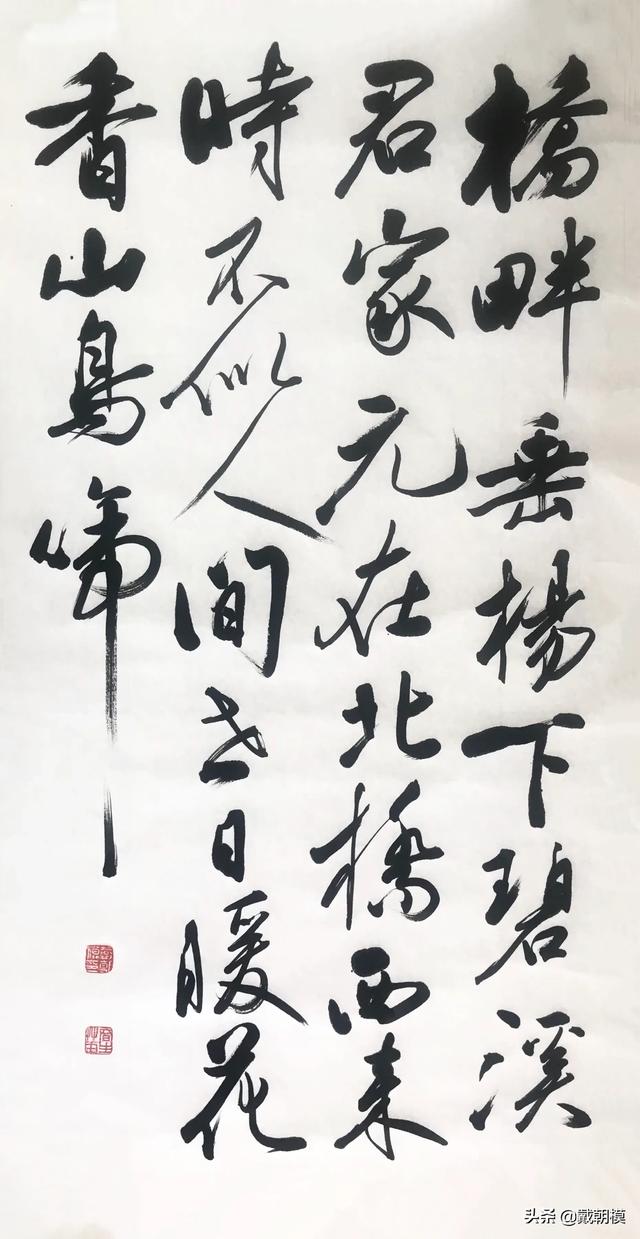 橋畔垂楊下碧溪
君家元在北橋西来
時不似人间世日暖花
香山鳥啼
头条 @戴朝模